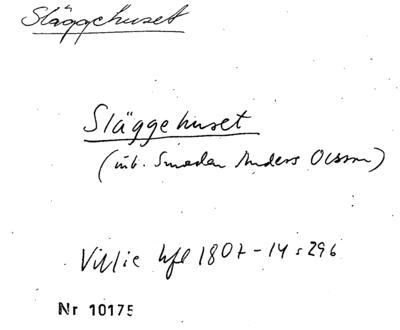 Släggehuset
Släggehuset
(inb. Smeden Anders Olsson)
Villie hfl 1807-14 s 296
Nr 10175